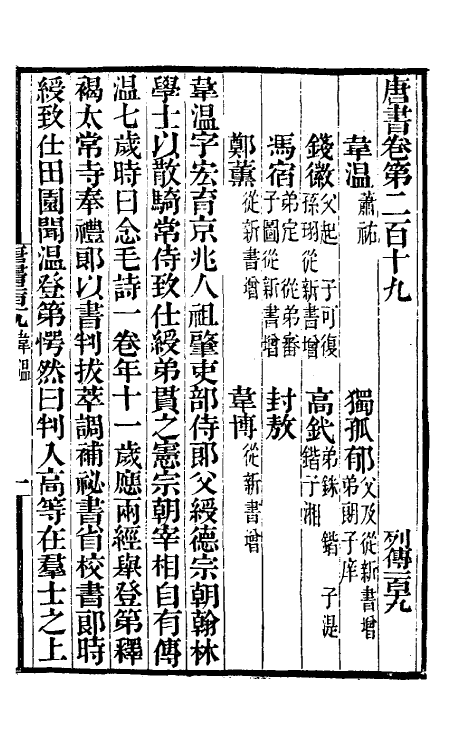 唐書卷第二百十九　列傳一百九
韋溫 蕭祐　獨孤郁 父及從新書增 弟朗 子庠
錢徽 父起　子可復 孫珝從新書增　高釴 弟銖　鍇　子湜 鍇子湘
馮宿 弟定　從弟審 子圖從新書增　封敖
鄭薰 從新書增　韋博 從新書增
韋溫字宏育京兆人祖肇吏部侍郎父綬德宗朝翰林
學士以散騎常侍致仕綬弟貫之憲宗朝宰相自有傳
溫七歲時日念毛詩一卷年十一歲應兩經舉登第釋
褐太常寺奉禮郎以書判拔萃調補祕書省校書郎時
綬致仕田園聞溫登第愕然曰判入高等在羣士之上
唐書二百十九 韋溫　一